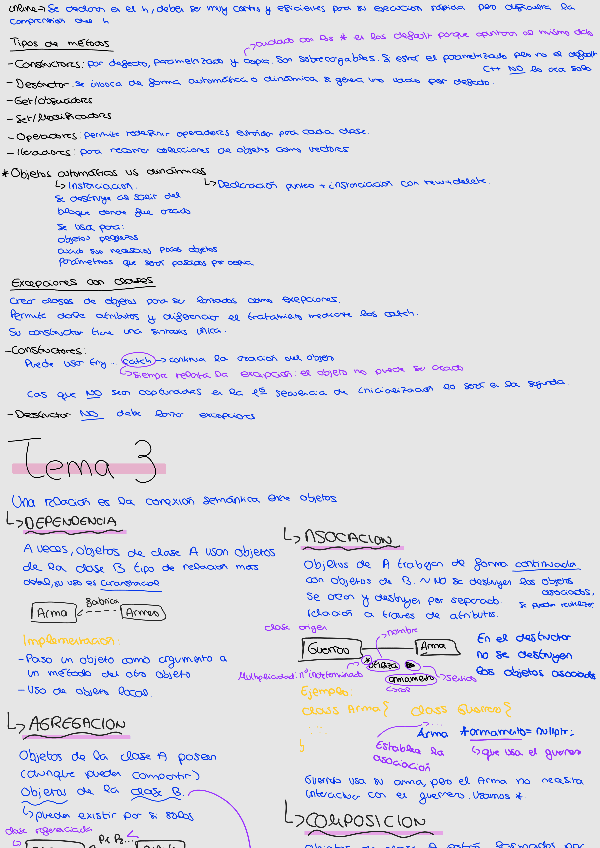 inline → Se declaran en el h, deben ser muy cortos y eficientes para su ejecución rápida pero dificulta la
comprensión del h
Tipos de métodos
cuidado con los * en los default porque apuntan al mismo dato
- Constructores: por defecto, parametrizado y copia. Son sobrecargables. Si está el parametrizado pero no el default
C++ NO lo crea solo
- Destructor: se invoca de forma automática o dinámica si genera uno vacío por defecto.
- Get/observadores
- Set/Modificadores
- Operadores: permite redefinir operadores estándar para cada clase.
- Iteradores: para recorrer colecciones de objetos como vectores
* Objetos automáticos vs dinámicos
↳ Instanciación.
↳ Declaración puntero + instanciación con new + delete.
Se destruye al salir del
bloque donde fue creado
Se usa para:
objetos pequeños
cuando son necesarios pocos objetos
parámetros que serán pasados por copia
Excepciones con clases
Crear clases de objetos para ser lanzados como excepciones.
Permite darle atributos y diferenciar el tratamiento mediante los catch.
Su constructor tiene una sintaxis única.
- Constructores:
Puede usar try... catch → continúa la creación del objeto
↳ siempre relanza la excepción: el objeto no puede ser creado
Las que NO sean capturadas en la 1ª secuencia de inicialización lo será en la segunda.
- Destructor NO debe lanzar excepciones
Tema 3
Una relación es la conexión semántica entre objetos
↳ DEPENDENCIA
A veces, objetos de clase A usan objetos
de la clase B tipo de relación más
débil, su uso es circunstancial
Arma
fabrica
Armero
Implementación:
- Paso un objeto como argumento a
un método del otro objeto
- Uso de objeto local.
↳ ASOCIACION
Objetos de A trabajan de forma continuada
con objetos de B. ~ NO se destruyen los objetos
asociados,
Se crean y destruyen por separado.
se pueden reutilizar
relación a través de atributos.
clase origen
nombre
Guerrero
Arma
* utiliza
Multiplicidad: nº indeterminado
armamento
sentido
rol
En el destructor
no se destruyen
los objetos asociados
Ejemplo:
class Arma {
class Guerrero {
...
...
}
Arma *armamento = nullptr;
Establece la
asociación
↳ que usa el guerrero
Guerrero usa su arma, pero el Arma no necesita
interactuar con el guerrero. Usamos *
↳ AGREGACION
Objetos de la clase A poseen
(aunque pueden compartir)
Objetos de la clase B.
↳ pueden existir por sí solos
clase referenciada
↳ COMPOSICION
Objetos de clase A están formados por